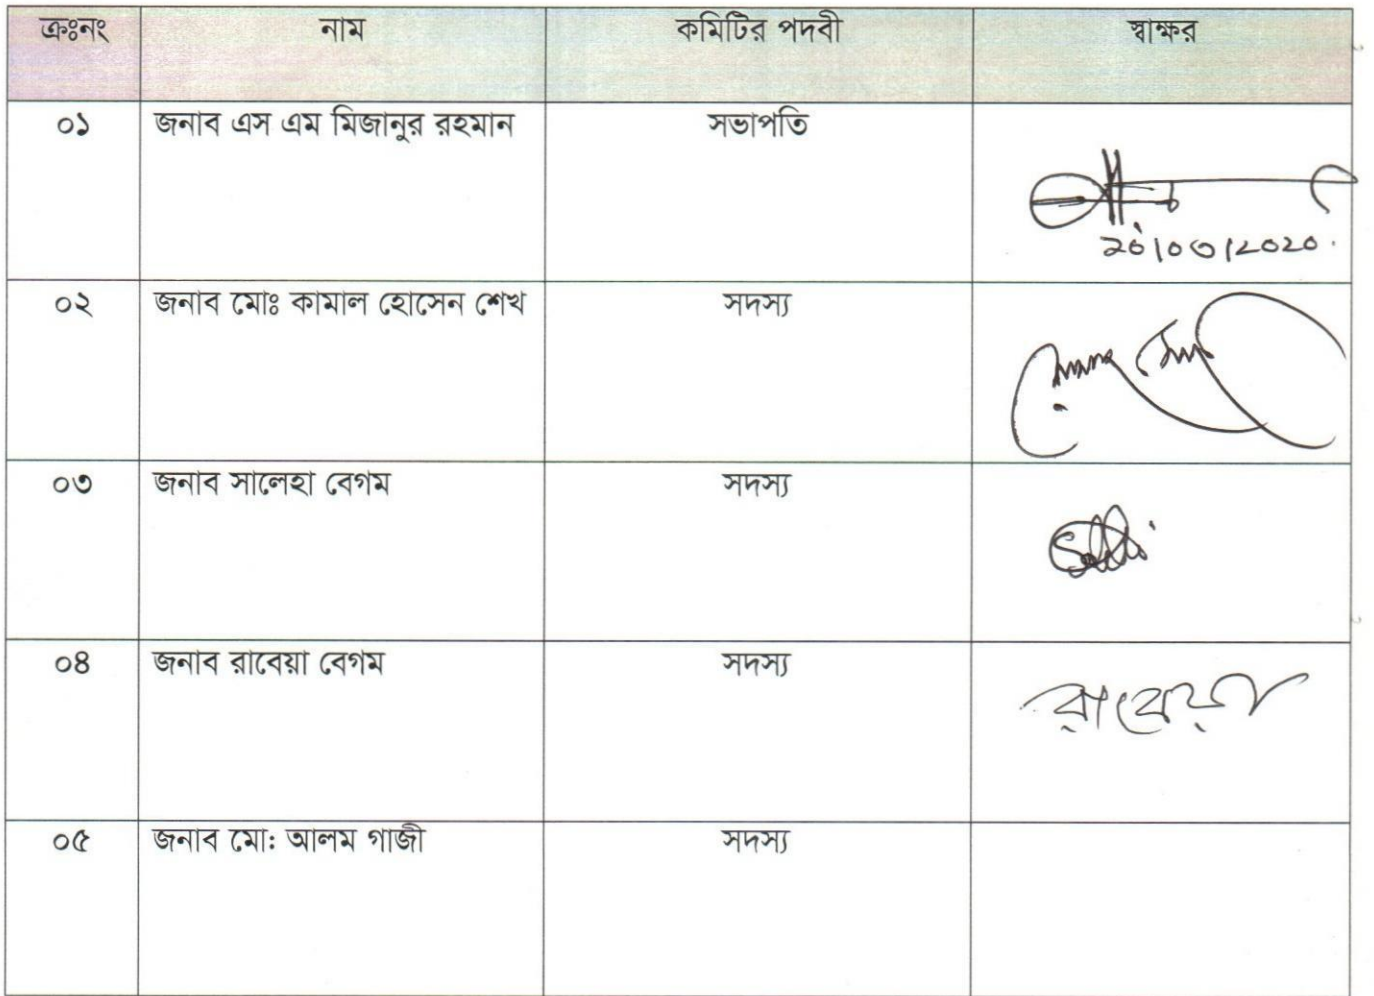 ক্রঃনং নাম কমিটির পদবী স্বাক্ষর
০১ জনাব এস এম মিজানুর রহমান সভাপতি
০২ জনাব মোঃ কামাল হোসেন শেখ সদস্য
০৩ জনাব সালেহা বেগম সদস্য
০৪ জনাব রাবেয়া বেগম সদস্য রাবেয়া
০৫ জনাব মো: আলম গাজী সদস্য